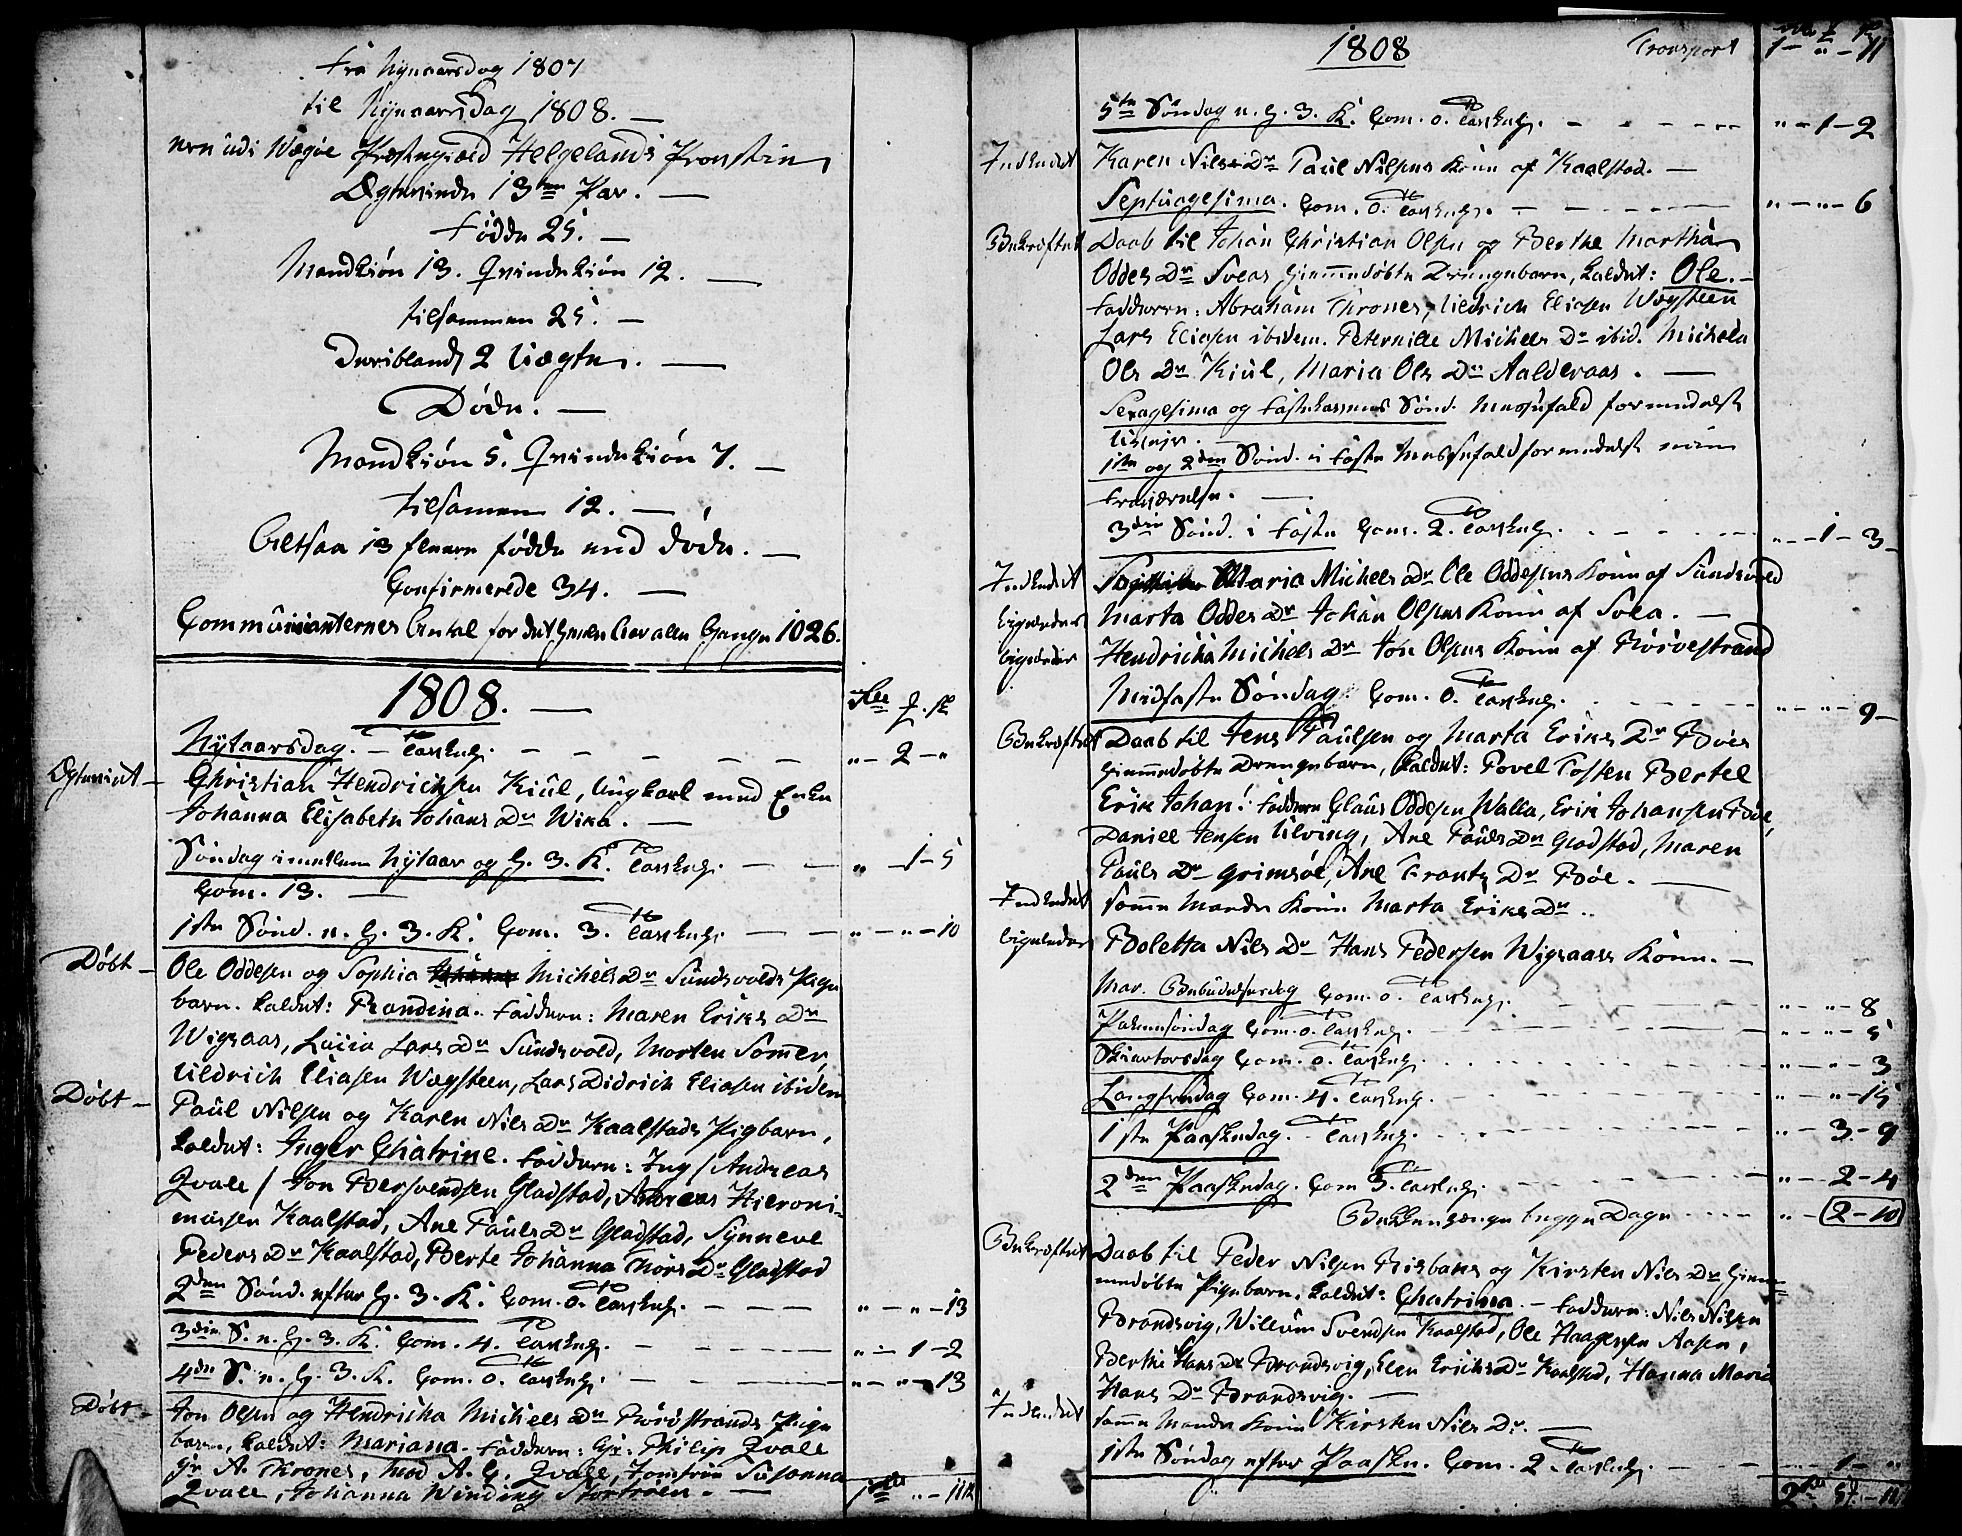 Fra Nynaarsdag 1807
til Nynaarsdag 1808. —
ere udi Wægøe Præstegield Helgelands Provstie
Ægteviede 13ten Par. —
Fødde 25. —
Mandkiøn 13. Qvindekiøn 12. —
tilsammen 25. —
Deriblandt 2 Uægte. —
Døde. —
Mandkiøn 5. Qvindekiøn 7. —
tilsamen 12. —
Altsaa 13 fleere fødde end døde. —
Confirmerede 34. —
Communicanternes Antal for det heele Aar alle Gange 1026.
1808. —
Nytaarsdag. — Tavlpeng. — — — „ — 2 — „
Ægteviet — Christian Hendrichsen Kiul, Ungkarl med Enke
Johanna Elisabeth Johans Dr Wika. —
Søndag imellem Nytaar og H. 3. K. Tavlpeng. — „ — 1 — 5
Com. 13. —
1ste Sønd. e. H. 3. K. Com. 3. Tavlpeng. — „ — „ — 10
Døbt — Ole Oddesen og Sophia Michels Dr Sundsvolds Pige
barn. kaldet: Randina. Faddere: Maren Eriks Dr
Wigsaas, Lucia Lars Dr Sundsvold, Morten Somer,
Uldrich Eliasen Wægsteen, Lars Didrich Eliasen ibidem
Døbt — Paul Nilsen og Karen Nils Dr Kaalstads Pigbarn,
kaldet: Inger Chatrine. Faddere: Ing / Andreas
Qvale / Jon Bersvendsen Gladstad, Andreas Hieroni-
musen Kaalstad, Ane Pauls Dr Gladstad, Synneve
Peders Dr Kaalstad, Berte Johanna Thors Dr Gladstad
2den Sønd. efter H. 3. K. Com. 0. Tavlpeng. — „ — „ — 13
3die S. e. H. 3. K. Com. 4. Tavlpeng. — „ — 1 — 2
4de S. e. H. 3. K. Com. 0. Tavlpeng. — „ — „ — 13
Døbt — Jon Olsen og Hendricha Michels Dr Rørøstrands Pige
barn, kaldet: Mariana. Faddere: Hr: Philip Qvale
Hr A. Thrones, Mad A. C. Qvale, Jomfrue Susanna
Qvale, Johanna Winding Stortroen. —
1808 Transport 1 — „ — 11
5te Søndag e. H. 3. K. Com. 0. Tavlpeng. — „ — 1 — 2
Indledet Karen Nils Dr Paul Nilsens Kone af Kaalstad. —
Septuagesima. Com. 0. Tavlpeng. — „ — „ — 6
Bekræftet Daab til Johan Christian Olsen og Berthe Martha
Oddes Dr Sveas hiemmedøbte Drengebarn, kaldet: Ole. —
Faddere: Abraham Thrones, Uldrich Eliasen Wægsteen
Lars Eliasen ibidem. Peternille Michels Dr ibid. Michela
Ols Dr Kiul, Maria Ols Dr Aaldevaas. —
Sexagesima og Fastelavens Sønd. Messefald formedelst
Uveir. —
1ste og 2den Sønd. i Faste Messefald formedelst min
Fraværelse. —
3die Sønd. i Faste Com. 2. Tavlpeng. — „ — 1 — 3 —
Indledet Maria Michels Dr Ole Oddesens Kone af Sundsvold
ligeledes Marta Oddes Dr Johan Olsens Kone af Svea. —
ligeledes Hendricha Michels Dr Jon Olsens Kone af Rørøestrand
Midfaste Søndag. Com. 0. Tavlpeng. — „ — „ — 9 —
Bekræftet Daab til Jens Paulsen og Marta Eriks Dr Bøes
hiemmedøbte Drengebarn, kaldet: Povel Tosten Bertel
Erik Johan! Faddere Claus Oddesen Walla, Erik Johansen Bøe,
Daniel Jensen Ulving, Ane Pauls Dr Gladstad, Maren
Pauls Dr Grimsøe, Ane Frantz Dr Bøe. —
Indledet samme Mands Kone Marta Eriks Dr ..
ligeledes Boletta Nils Dr Hans Pedersen Wigsaas Kone. —
Mar. Bebudelsesdag Com. 0. Tavlpeng. — „ — „ — 8
Palmesøndag Com. 0. Tavlpeng. — „ — „ — 5
Skiærtorsdag Com. 0. Tavlpeng. — „ — „ — 3
Langfredag Com. 4. Tavlpeng. — „ — „ — 15
1ste Paaskedag. — Tavlpeng. — „ — 3 — 9
2den Paaskedag. Com 3. Tavlpeng. — „ — 2 — 4
Bekkenpenge begge Dage — „ — 2 — 10
Bekræftet Daab til Peder Nilsen Risbaks og Kirsten Nils Dr hiem-
medøbte Pigebarn, kaldet: Chatrina. — Faddere: Nils Nilsen
Brandsvig, Willum Svendsen Kaalstad, Ole Haagensen Aasen,
Berthe Hans Dr Brandsvig, Elen Erichs Dr Kaalstad, Hanna Maria
Hans Dr Brandsvig. —
Indledet samme Mands Kone Kirsten Nils Dr. —
1ste Søndag efter Paaske. Com. 2. Tavlpeng. — — 1 — „